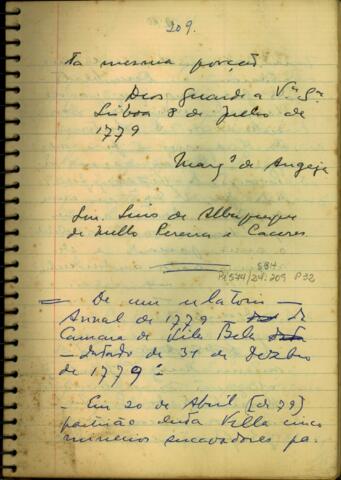 209.
ta mesma porção.
Deos guarde a V.ª S.ª
Lisboa 8 de Julho de
1779
Marq.ˢ de Angeja
Snr. Luis de Albuquerque
de Mello Pereira e Caceres.
584
P1574/24:209 P32
= De um relatorio –
Annal de 1779 – da
Camara de Villa Bella
– datado de 31 de Dezbro
de 1779 =
– Em 20 de Abril [de 79]
partirão desta Villa cinco
mineiros succavadores pa-